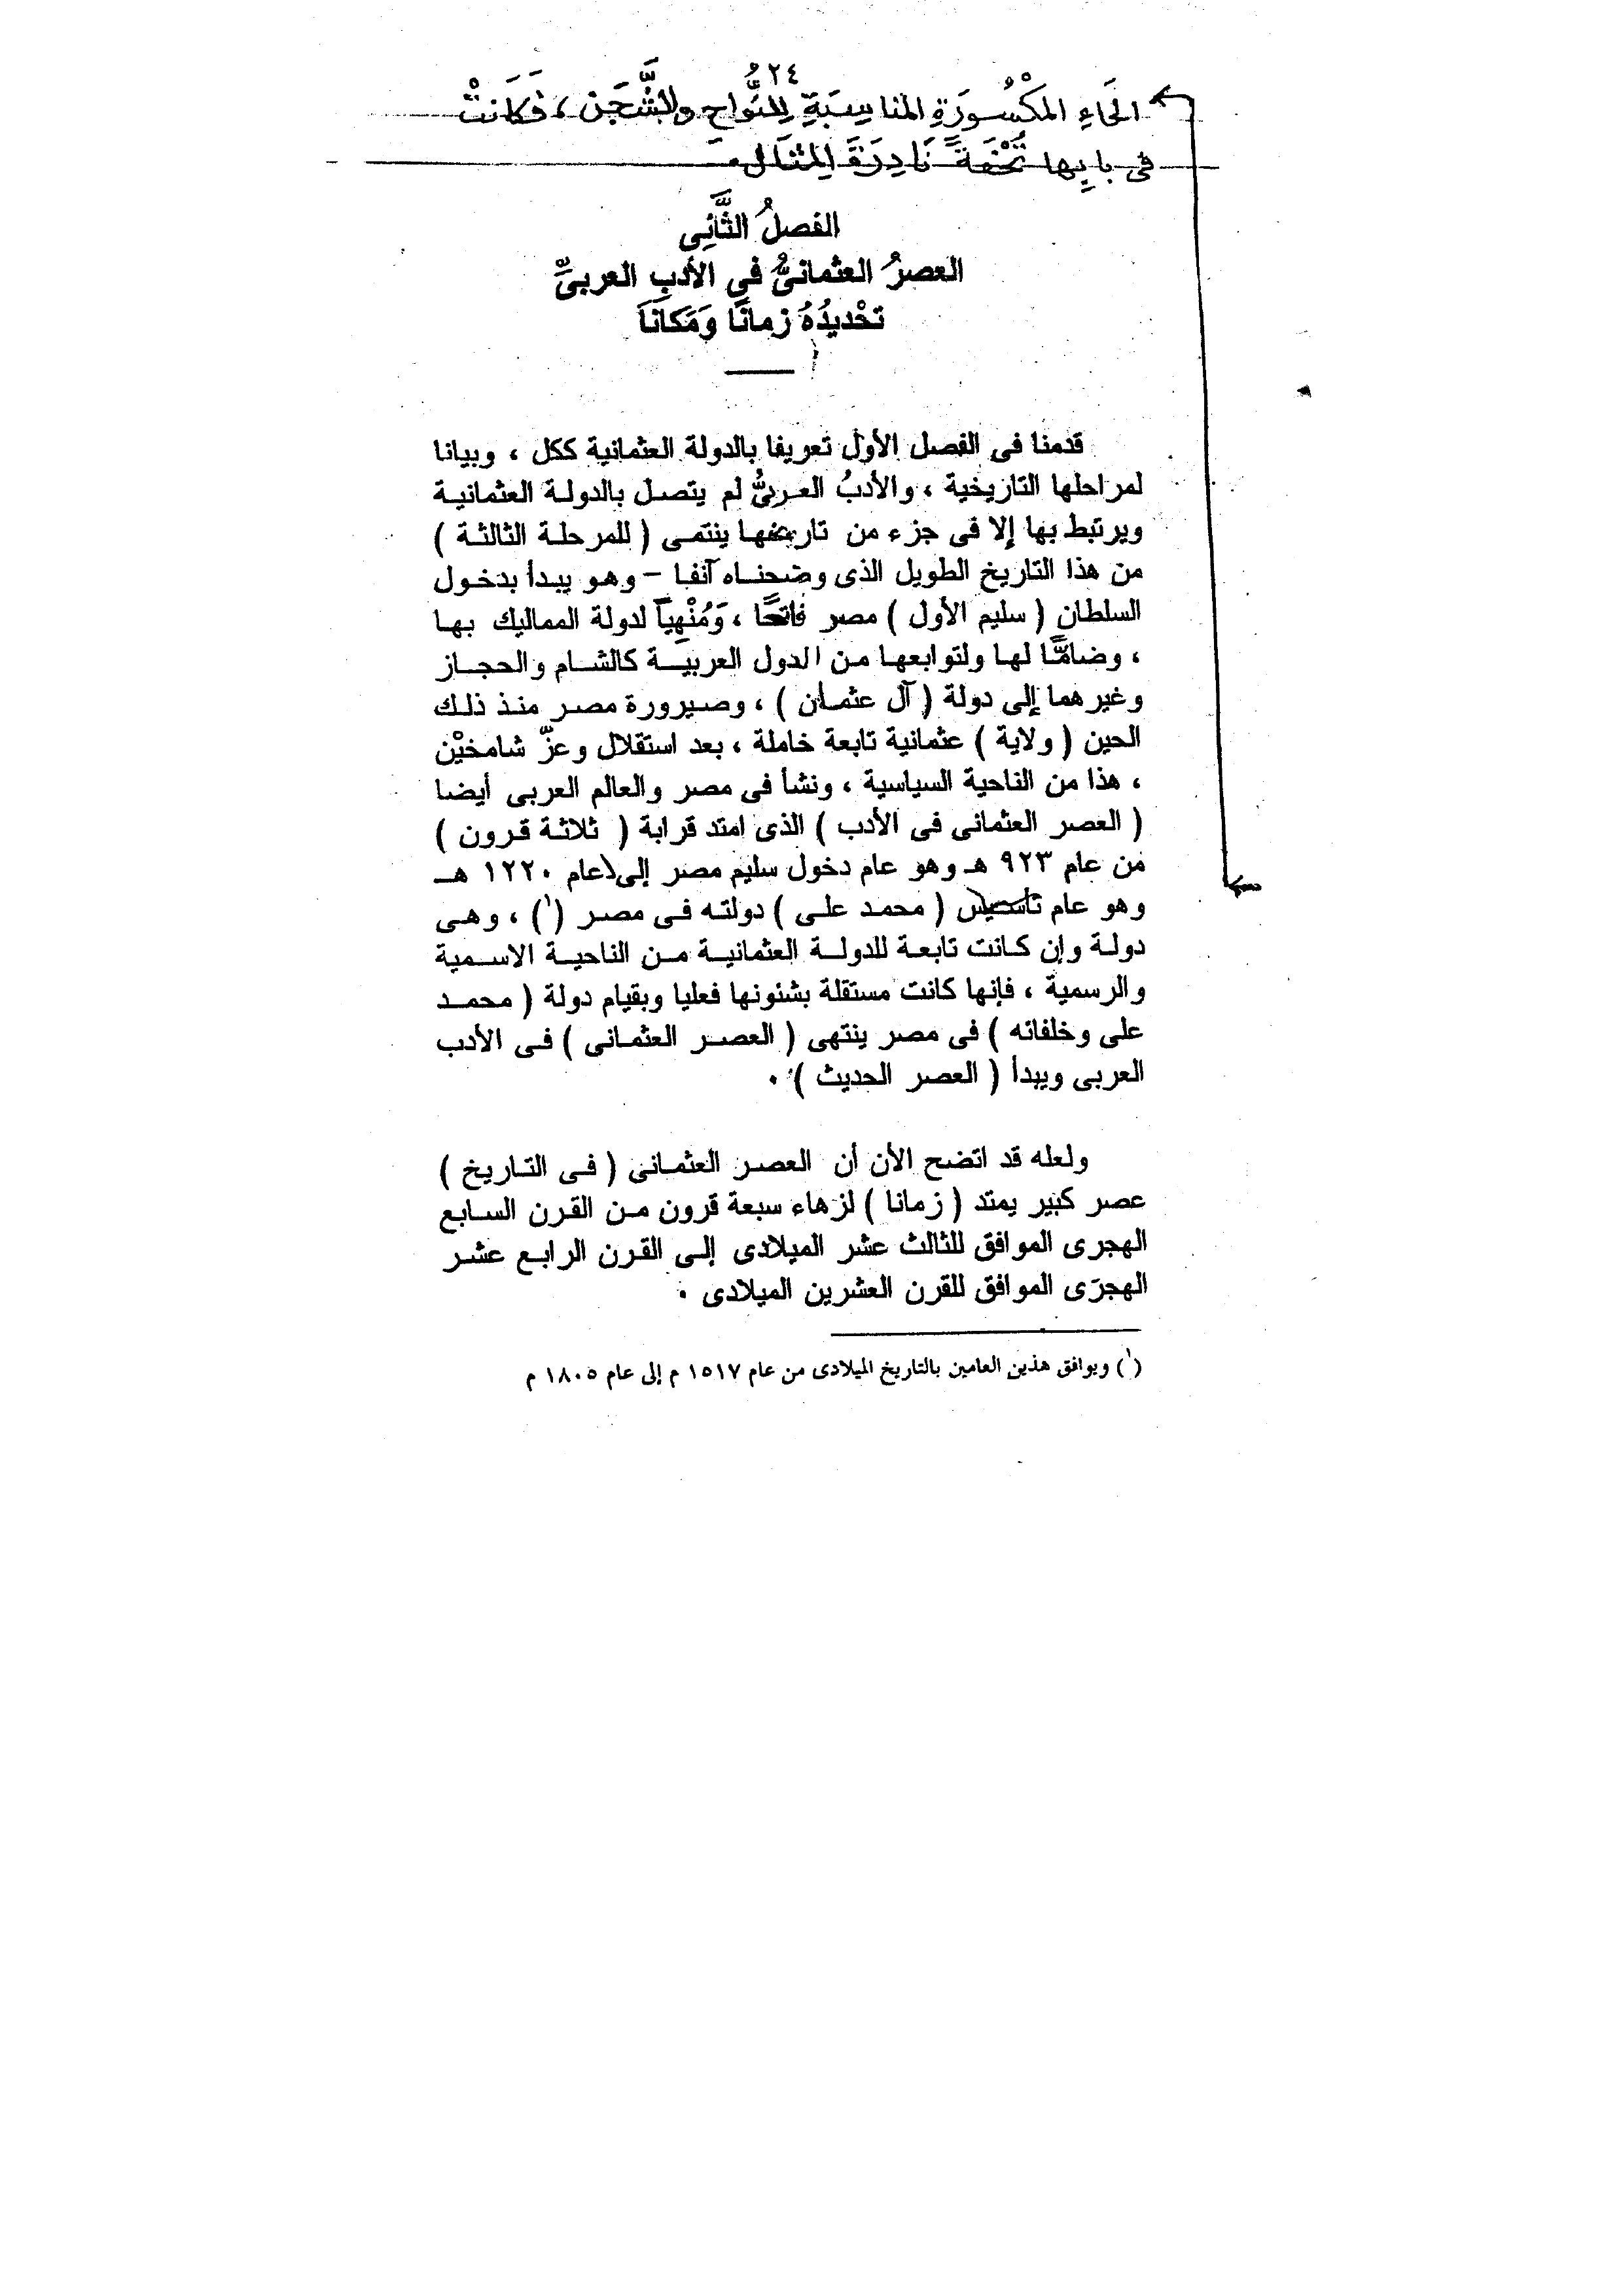 ٢٤
الحَاءِ المَكْسُورَةِ المناسِبَةِ للنُّواحِ والشَّجَن ، فَكَانتْ
فى بابِها تُحْفَةً نَادِرَةَ المِثَال
الفصلُ الثَّانِى
العصرُ العثمانىُّ فى الأدبِ العربىِّ
تحْديدُهُ زمانًا وَمَكانًا
قدمنا فى الفصل الأول تعريفا بالدولة العثمانية ككل ، وبيانا
لمراحلها التاريخية ، والأدبُ العربىُّ لم يتصل بالدولة العثمانية
ويرتبط بها إلا فى جزء من تاريخها ينتمى ( للمرحلة الثالثة )
من هذا التاريخ الطويل الذى وضحناه آنفا – وهو يبدأ بدخول
السلطان ( سليم الأول ) مصر فاتحًا ، وَمُنْهِياً لدولة المماليك بها
، وضامًّا لها ولتوابعها من الدول العربية كالشام والحجاز
وغيرهما إلى دولة ( آل عثمان ) ، وصيرورة مصر منذ ذلك
الحين ( ولاية ) عثمانية تابعة خاملة ، بعد استقلال وعزّ شامخيْن
، هذا من الناحية السياسية ، ونشأ فى مصر والعالم العربى أيضا
( العصر العثمانى فى الأدب ) الذى امتد قرابة ( ثلاثة قرون )
من عام ٩٢٣ هـ وهو عام دخول سليم مصر إلى عام ١٢٢٠ هـ
وهو عام تأسيس ( محمد على ) دولته فى مصر (١) ، وهى
دولة وإن كانت تابعة للدولة العثمانية من الناحية الاسمية
والرسمية ، فإنها كانت مستقلة بشئونها فعليا وبقيام دولة ( محمد
على وخلفائه ) فى مصر ينتهى ( العصر العثمانى ) فى الأدب
العربى ويبدأ ( العصر الحديث ) .
ولعله قد اتضح الأن أن العصر العثمانى ( فى التاريخ )
عصر كبير يمتد ( زمانا ) لزهاء سبعة قرون من القرن السابع
الهجرى الموافق للثالث عشر الميلادى إلى القرن الرابع عشر
الهجرى الموافق للقرن العشرين الميلادى .
(١) ويوافق هذين العامين بالتاريخ الميلادى من عام ١٥١٧ م إلى عام ١٨٠٥ م